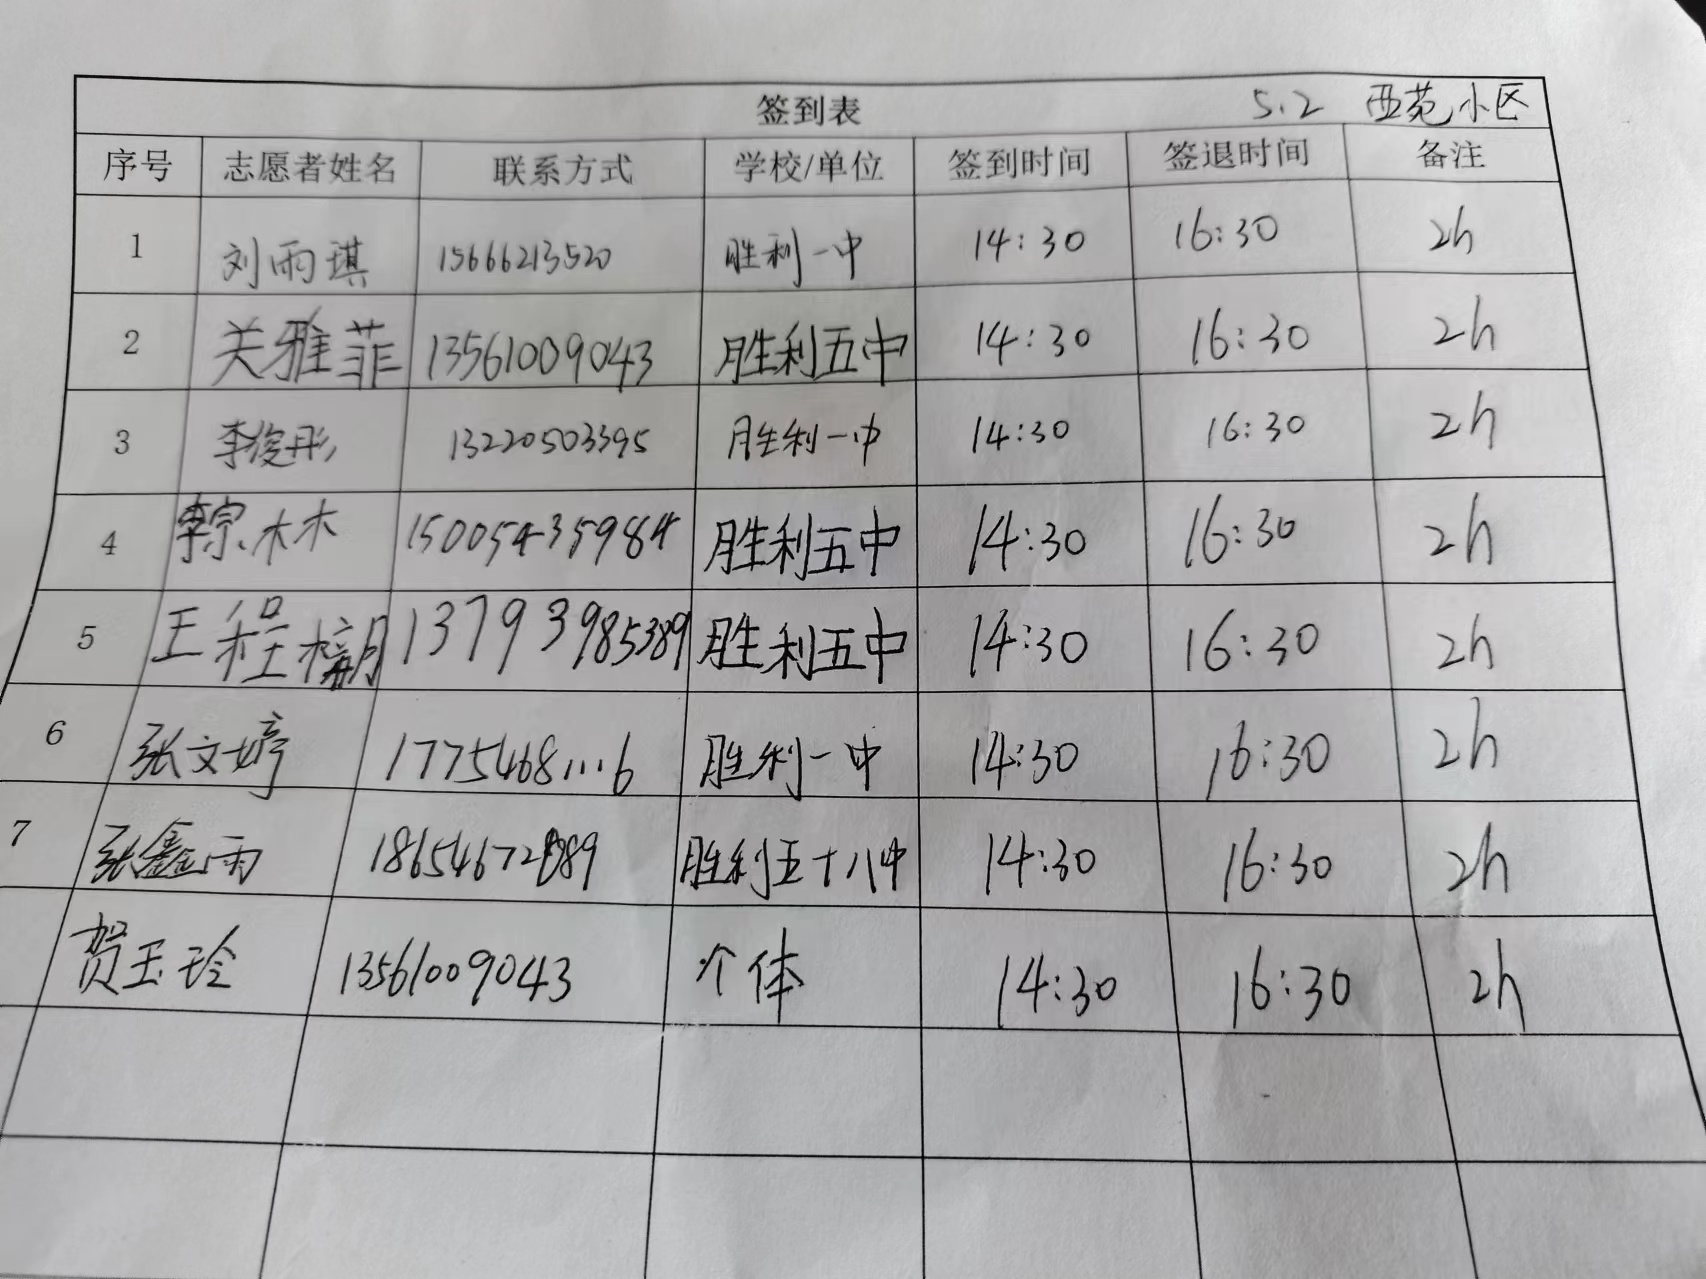 签到表 5.2 西苑小区
序号 志愿者姓名 联系方式 学校/单位 签到时间 签退时间 备注
1 刘雨琪 15666213520 胜利一中 14:30 16:30 2h
2 关雅菲 13561009043 胜利五中 14:30 16:30 2h
3 李俊彤 13220503395 胜利一中 14:30 16:30 2h
4 李宗林木 15005435984 胜利五中 14:30 16:30 2h
5 王程 13793985389 胜利五中 14:30 16:30 2h
6 张文婷 17754681116 胜利一中 14:30 16:30 2h
7 张鑫雨 胜利五十八中 14:30 16:30 2h
贺玉玲 13561009043 个体 14:30 16:30 2h